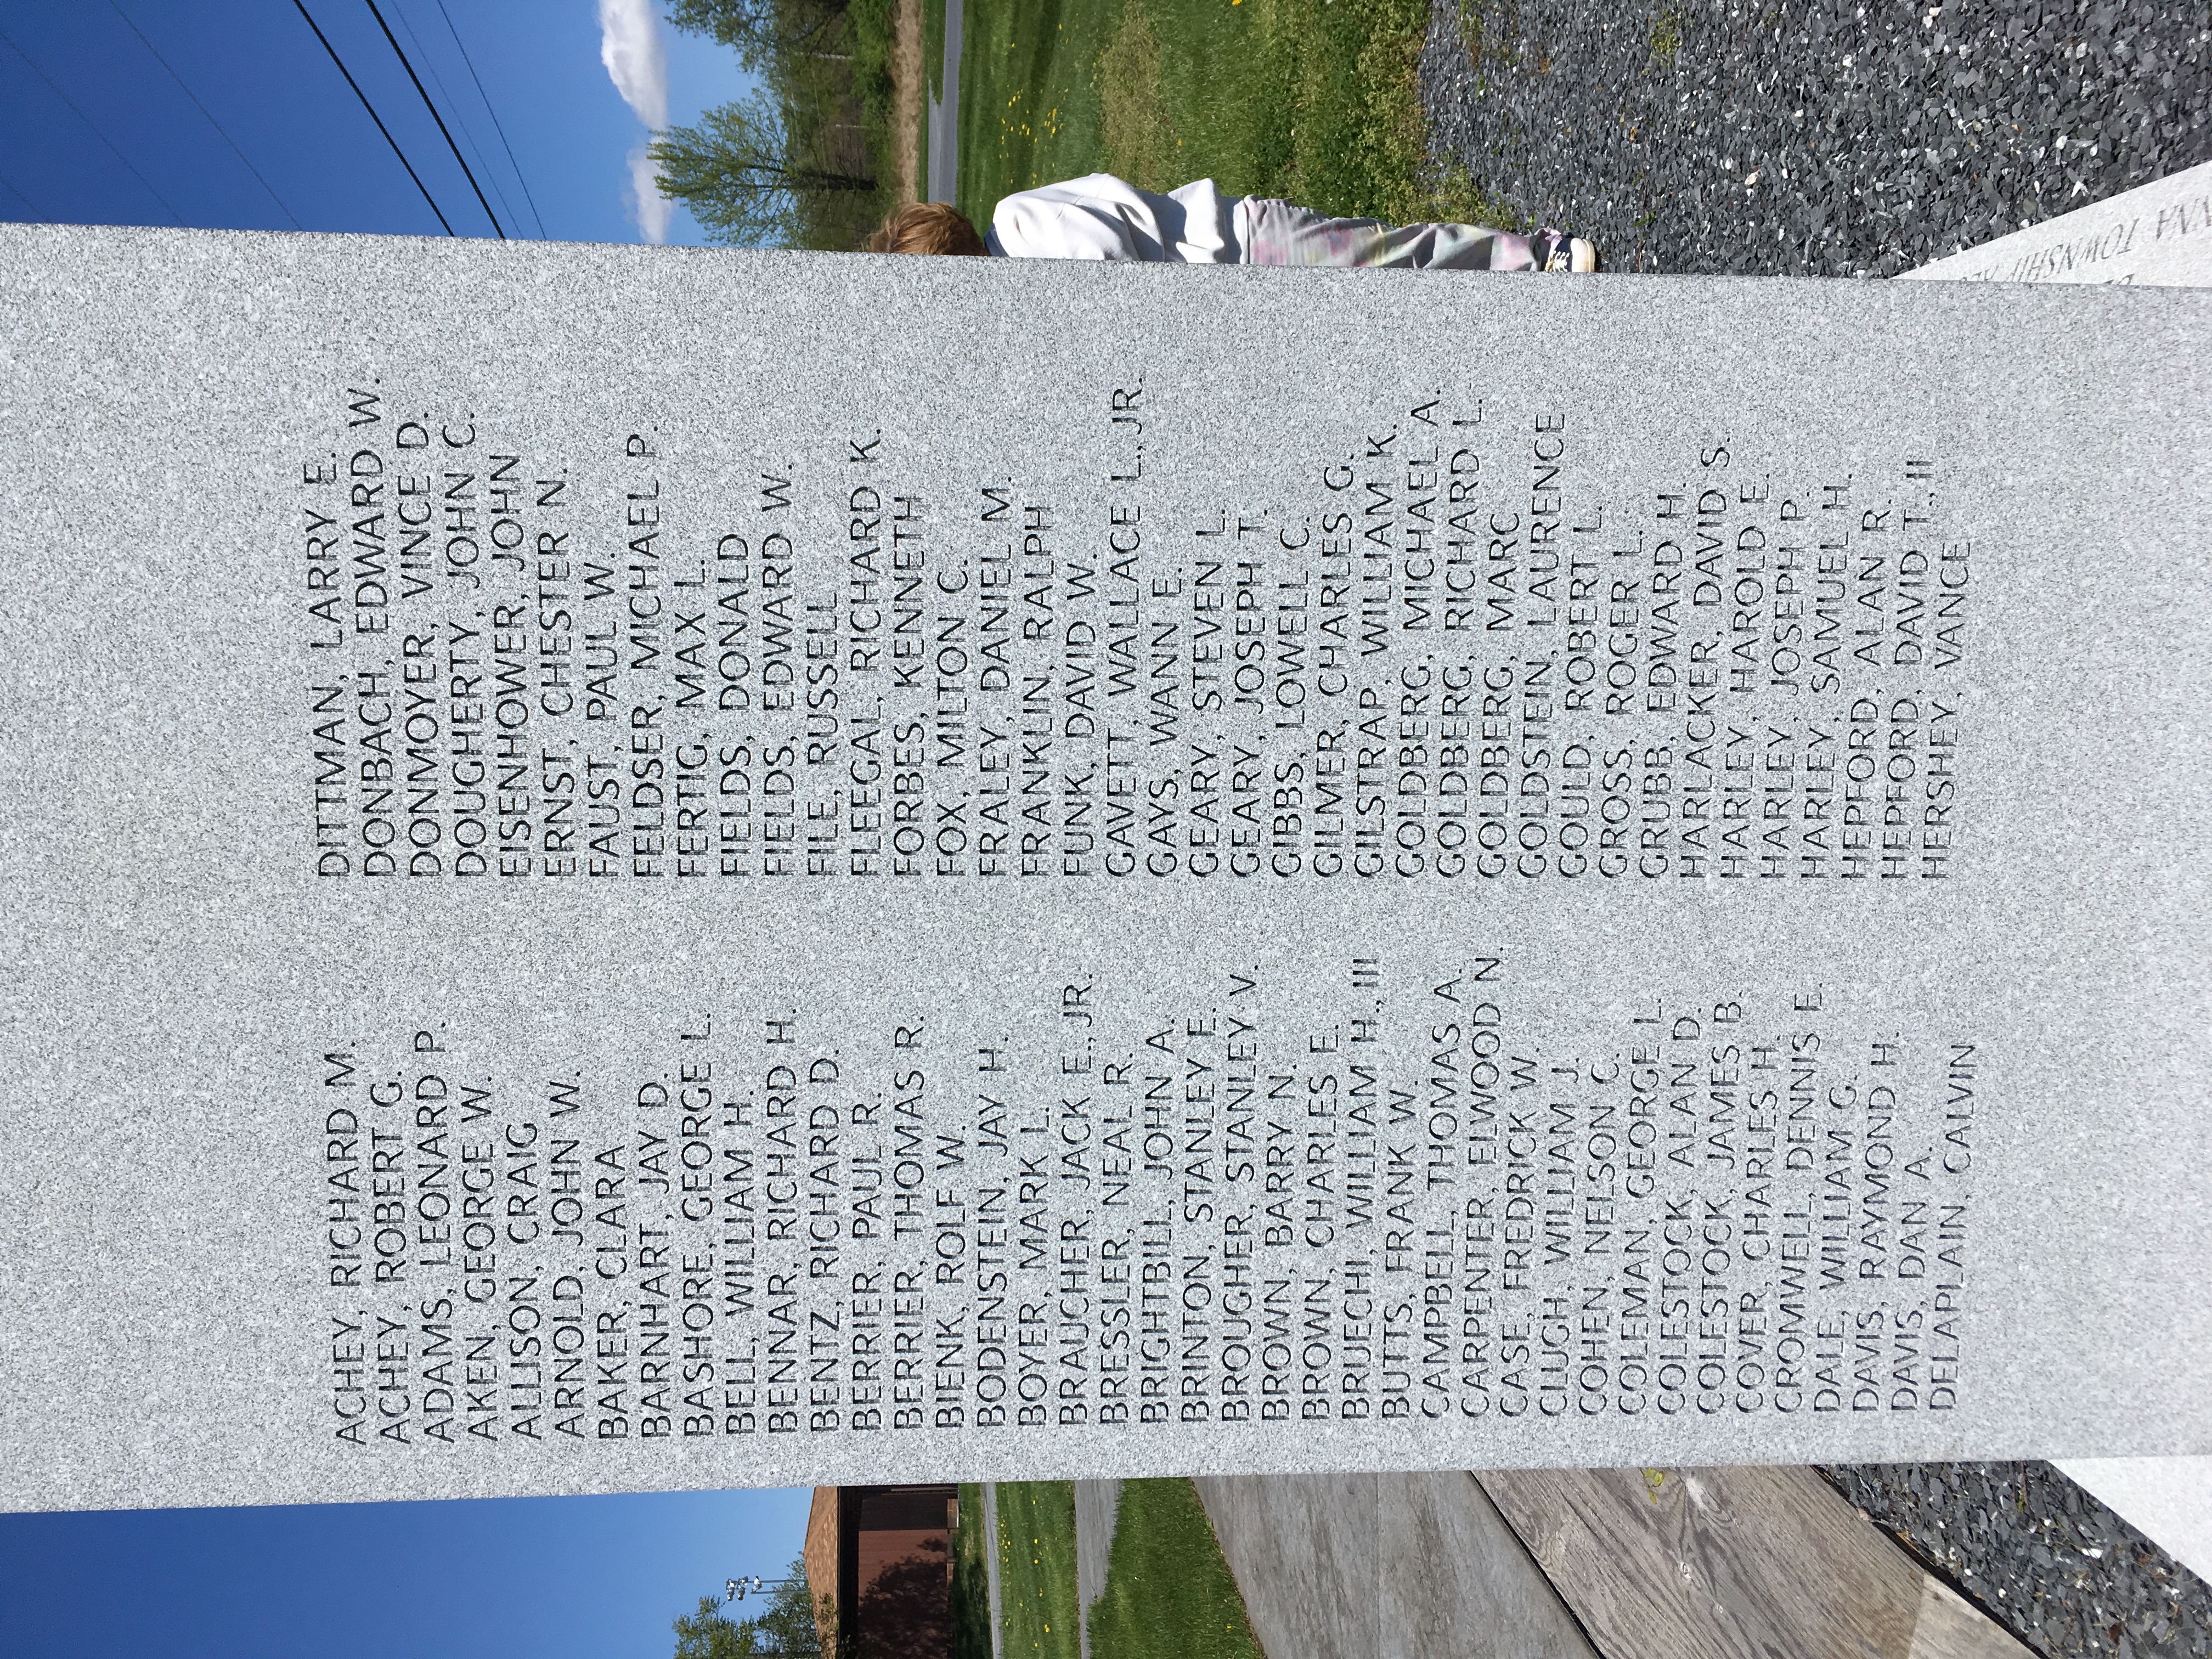 ACHEY, RICHARD M.
ACHEY, ROBERT G.
ADAMS, LEONARD P.
AKEN, GEORGE W.
ALLISON, CRAIG
ARNOLD, JOHN W.
BAKER, CLARA
BARNHART, JAY D.
BASHORE, GEORGE L.
BELL, WILLIAM H.
BENNAR, RICHARD H.
BENTZ, RICHARD D.
BERRIER, PAUL R.
BERRIER, THOMAS R.
BIENK, ROLF W.
BODENSTEIN, JAY H.
BOYER, MARK L.
BRAUCHER, JACK E., JR.
BRESSLER, NEAL R.
BRIGHTBILL, JOHN A.
BRINTON, STANLEY E.
BROUGHER, STANLEY V.
BROWN, BARRY N.
BROWN, CHARLES E.
BRUECHI, WILLIAM H., III
BUTTS, FRANK W.
CAMPBELL, THOMAS A.
CARPENTER, ELWOOD N.
CASE, FREDRICK W.
CLUGH, WILLIAM J.
COHEN, NELSON C.
COLEMAN, GEORGE L.
COLESTOCK, ALAN D.
COLESTOCK, JAMES B.
COVER, CHARLES H.
CROMWELL, DENNIS E.
DALE, WILLIAM G.
DAVIS, RAYMOND H.
DAVIS, DAN A.
DELAPLAIN, CALVIN
DITTMAN, LARRY E.
DONBACH, EDWARD W.
DONMOYER, VINCE D.
DOUGHERTY, JOHN C.
EISENHOWER, JOHN
ERNST, CHESTER N.
FAUST, PAUL W.
FELDSER, MICHAEL P.
FERTIG, MAX L.
FIELDS, DONALD
FIELDS, EDWARD W.
FILE, RUSSELL
FLEEGAL, RICHARD K.
FORBES, KENNETH
FOX, MILTON C.
FRALEY, DANIEL M.
FRANKLIN, RALPH
FUNK, DAVID W.
GAVETT, WALLACE L., JR.
GAYS, WANN E.
GEARY, STEVEN L.
GEARY, JOSEPH T.
GIBBS, LOWELL C.
GILMER, CHARLES G.
GILSTRAP, WILLIAM K.
GOLDBERG, MICHAEL A.
GOLDBERG, RICHARD L.
GOLDBERG, MARC
GOLDSTEIN, LAURENCE
GOULD, ROBERT L.
GROSS, ROGER L.
GRUBB, EDWARD H.
HARLACKER, DAVID S.
HARLEY, HAROLD E.
HARLEY, JOSEPH P.
HARLEY, SAMUEL H.
HEPFORD, ALAN R.
HEPFORD, DAVID T., II
HERSHEY, VANCE
TOWNSHIP